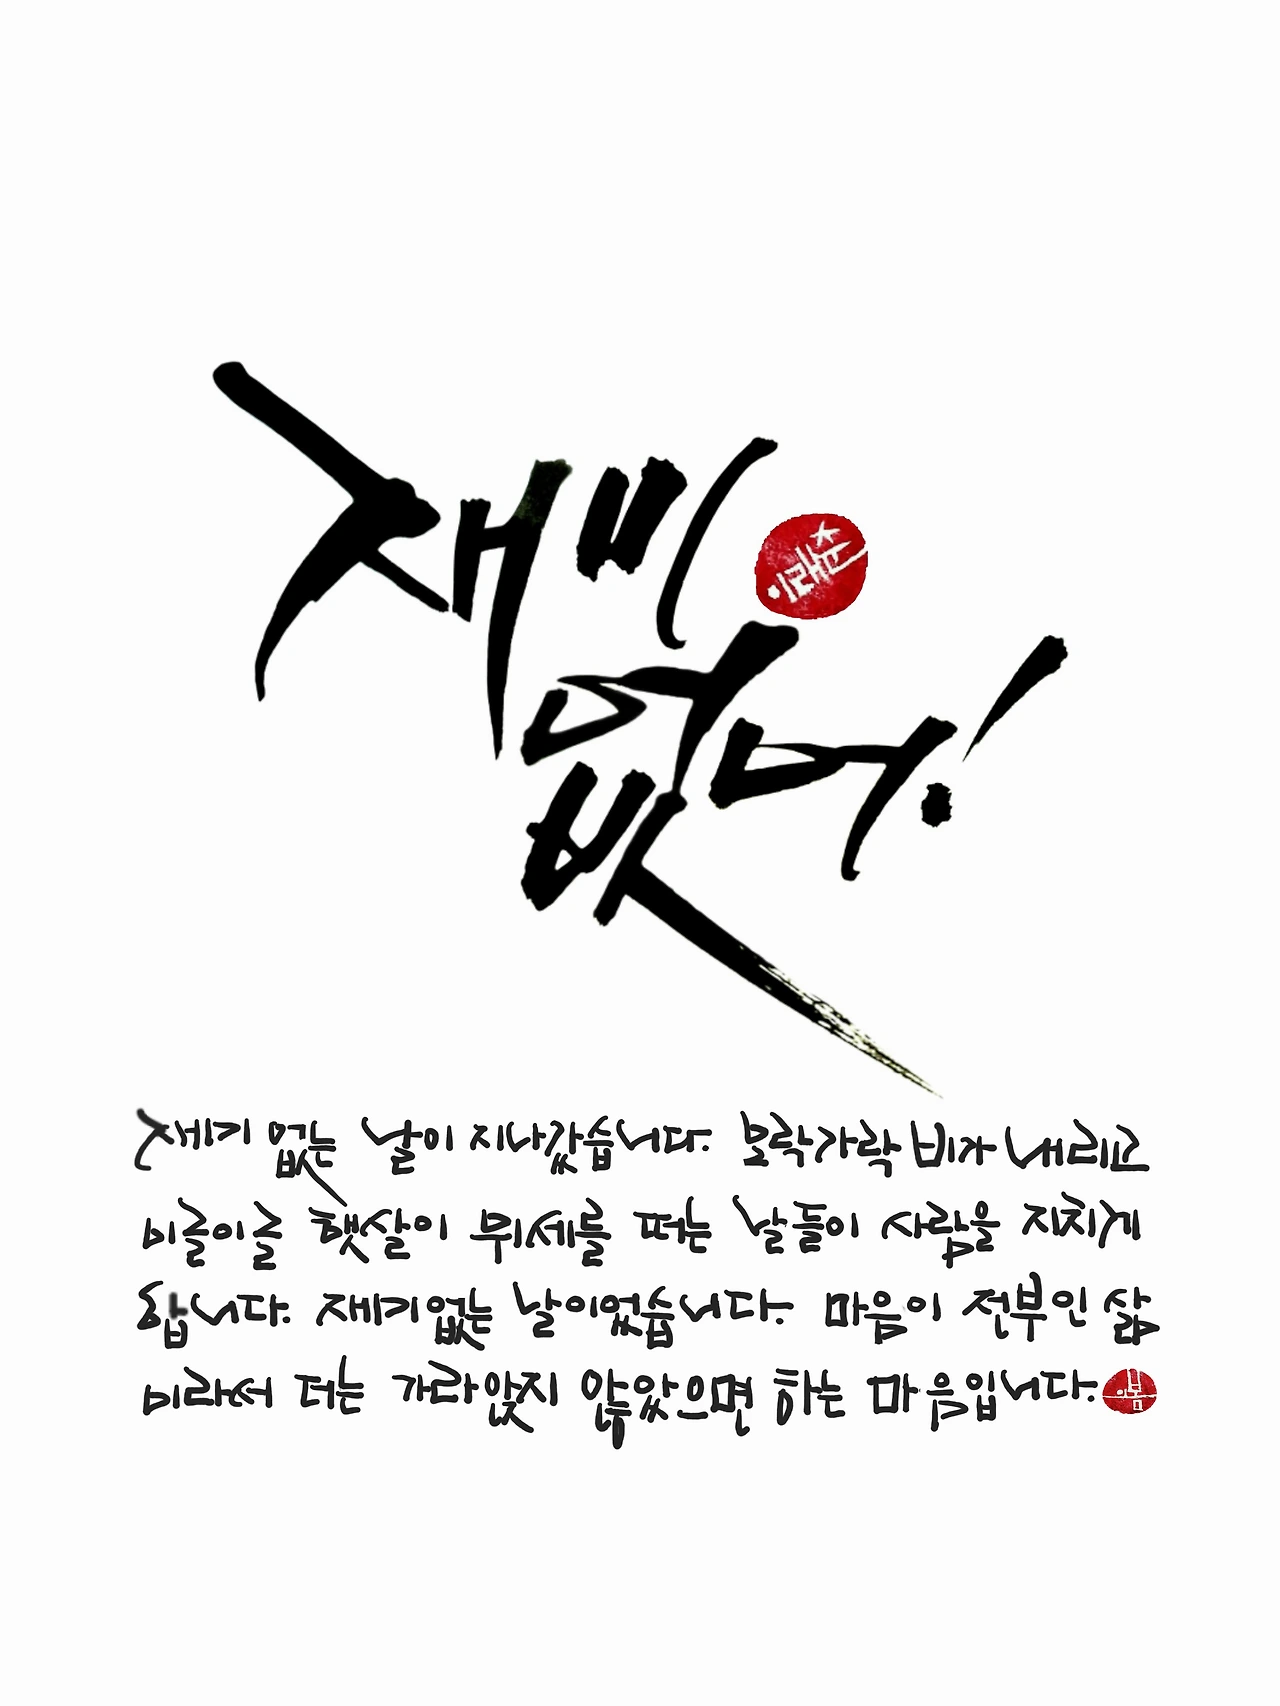 재미
없어!
재미 없는 날이 지나갔습니다. 보락가락 비가 내리고
이글이글 햇살이 위세를 떠는 날들이 사람을 지치게
합니다. 재미없는 날이었습니다. 마음이 전부인 삶
이라서 더는 가라앉지 않았으면 하는 마음입니다.